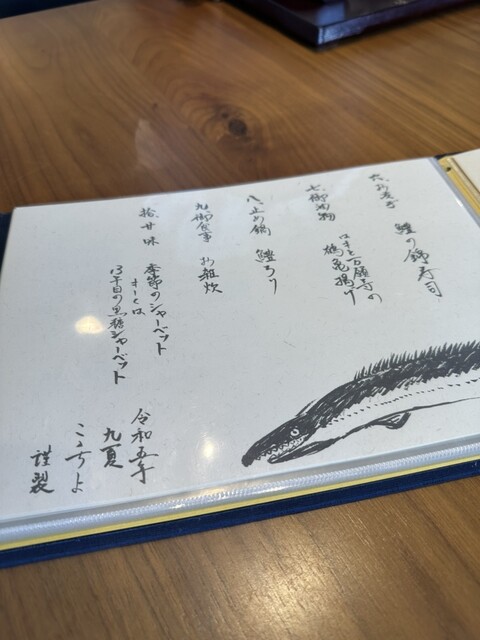 六、
鱧の錦寿司
七、御油物
はもと万願寺の
鶴亀揚げ
八、止め鍋 鱧ちり
九、御食事 お雑炊
拾、甘味 季節のシャーベット
もしくは
13年目の黒糖シャーベット
令和五年
九夏
こちよ
謹製